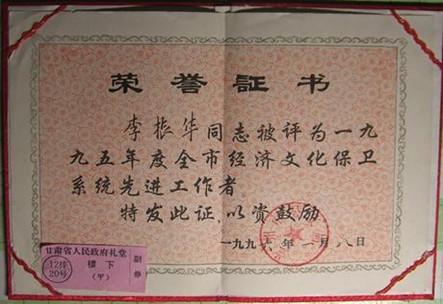 荣誉证书
李振华同志被评为一九
九五年度全市经济文化保卫
系统先进工作者
特发此证、以资鼓励
一九九六年一月八日
甘肃省人民政府礼堂
12排
20号
楼下
（甲）
副券